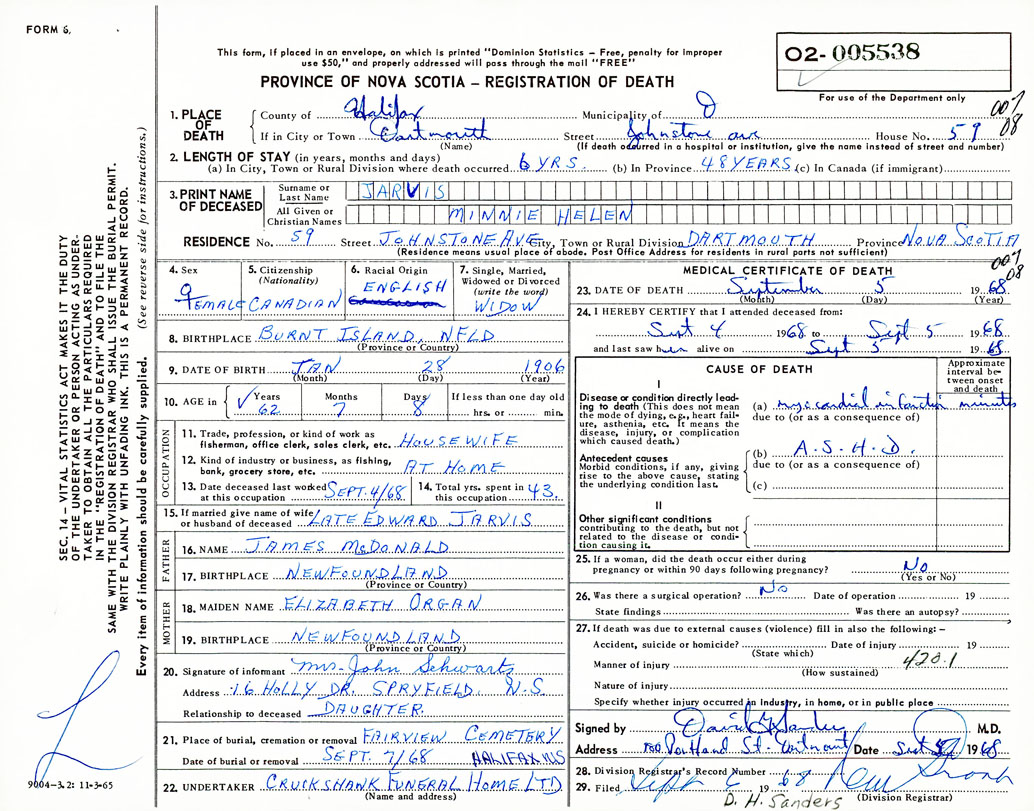 FORM 6.
This form, if placed in an envelope, on which is printed "Dominion Statistics – Free, penalty for improper
use $50," and properly addressed will pass through the mail "FREE"
PROVINCE OF NOVA SCOTIA – REGISTRATION OF DEATH
O2-005538
For use of the Department only
007
08
1. PLACE OF DEATH
County of Halifax Municipality of D
If in City or Town Dartmouth Street Johnstone ave House No. 59
(Name) (If death occurred in a hospital or institution, give the name instead of street and number)
2. LENGTH OF STAY (in years, months and days)
(a) In City, Town or Rural Division where death occurred 6 YRS. (b) In Province 48 YEARS (c) In Canada (if immigrant)
3. PRINT NAME OF DECEASED
Surname or Last Name JARVIS
All Given or Christian Names MINNIE HELEN
RESIDENCE No. 59 Street JOHNSTONE AVE City, Town or Rural Division DARTMOUTH Province NOVA SCOTIA
(Residence means usual place of abode. Post Office Address for residents in rural parts not sufficient)
4. Sex FEMALE
5. Citizenship (Nationality) CANADIAN
6. Racial Origin ENGLISH
7. Single, Married, Widowed or Divorced (write the word) WIDOW
8. BIRTHPLACE BURNT ISLAND, NFLD
(Province or Country)
9. DATE OF BIRTH JAN 28 1906
(Month) (Day) (Year)
10. AGE in Years 62 Months 7 Days 8 If less than one day old
hrs. or min.
OCCUPATION
11. Trade, profession, or kind of work as
fisherman, office clerk, sales clerk, etc. HOUSEWIFE
12. Kind of industry or business, as fishing,
bank, grocery store, etc. AT HOME
13. Date deceased last worked at this occupation SEPT. 4/68
14. Total yrs. spent in this occupation 43.
15. If married give name of wife
or husband of deceased LATE EDWARD JARVIS
FATHER
16. NAME JAMES McDONALD
17. BIRTHPLACE NEWFOUNDLAND
(Province or Country)
MOTHER
18. MAIDEN NAME ELIZABETH ORGAN
19. BIRTHPLACE NEWFOUNDLAND
(Province or Country)
20. Signature of informant Mrs. John Schwartz
Address 16 HOLLY DR. SPRYFIELD. N.S.
Relationship to deceased DAUGHTER.
21. Place of burial, cremation or removal FAIRVIEW CEMETERY
Date of burial or removal SEPT. 7/68 HALIFAX NS
22. UNDERTAKER CRUIKSHANK FUNERAL HOME LTD
(Name and address)
MEDICAL CERTIFICATE OF DEATH
007
08
23. DATE OF DEATH September 5 1968
(Month) (Day) (Year)
24. I HEREBY CERTIFY that I attended deceased from:
Sept 4 1968 to Sept 5 1968
and last saw her alive on Sept 5 1968
CAUSE OF DEATH
Approximate interval between onset and death
I
Disease or condition directly leading to death (This does not mean the mode of dying, e.g., heart failure, asthenia, etc. It means the disease, injury, or complication which caused death.)
(a) myocardial infarction minutes
due to (or as a consequence of)
Antecedent causes
Morbid conditions, if any, giving rise to the above cause, stating the underlying condition last.
(b) A.S.H.D.
due to (or as a consequence of)
(c)
II
Other significant conditions
contributing to the death, but not related to the disease or condition causing it.
25. If a woman, did the death occur either during
pregnancy or within 90 days following pregnancy? No
(Yes or No)
26. Was there a surgical operation? No Date of operation 19
State findings Was there an autopsy?
27. If death was due to external causes (violence) fill in also the following: –
Accident, suicide or homicide? Date of injury 19
(State which)
Manner of injury 420.1
(How sustained)
Nature of injury
Specify whether injury occurred in industry, in home, or in public place
Signed by M.D.
Address Portland St. Dartmouth Date Sept 1968
28. Division Registrar's Record Number
29. Filed Sept 6 1968
(Division Registrar)
D. H. Sanders
SEC. 14 – VITAL STATISTICS ACT MAKES IT THE DUTY
OF THE UNDERTAKER OR PERSON ACTING AS UNDER-
TAKER TO OBTAIN ALL THE PARTICULARS REQUIRED
IN THE "REGISTRATION OF DEATH" AND TO FILE THE
SAME WITH THE DIVISION REGISTRAR WHO SHALL ISSUE THE BURIAL PERMIT.
WRITE PLAINLY WITH UNFADING INK. THIS IS A PERMANENT RECORD.
Every item of information should be carefully supplied. (See reverse side for instructions.)
9004-3.2: 11-3-65